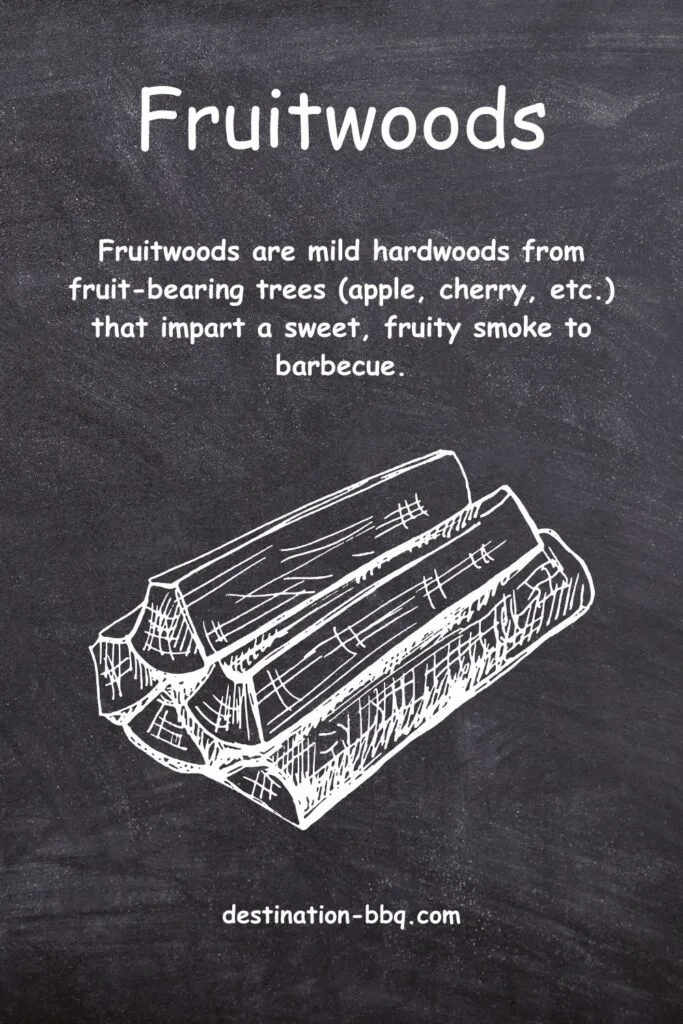 Fruitwoods
Fruitwoods are mild hardwoods from
fruit-bearing trees (apple, cherry, etc.)
that impart a sweet, fruity smoke to
barbecue.
destination-bbq.com